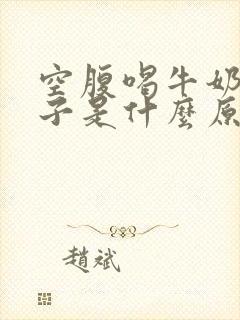 空腹喝牛奶
子是什麼原
趙斌